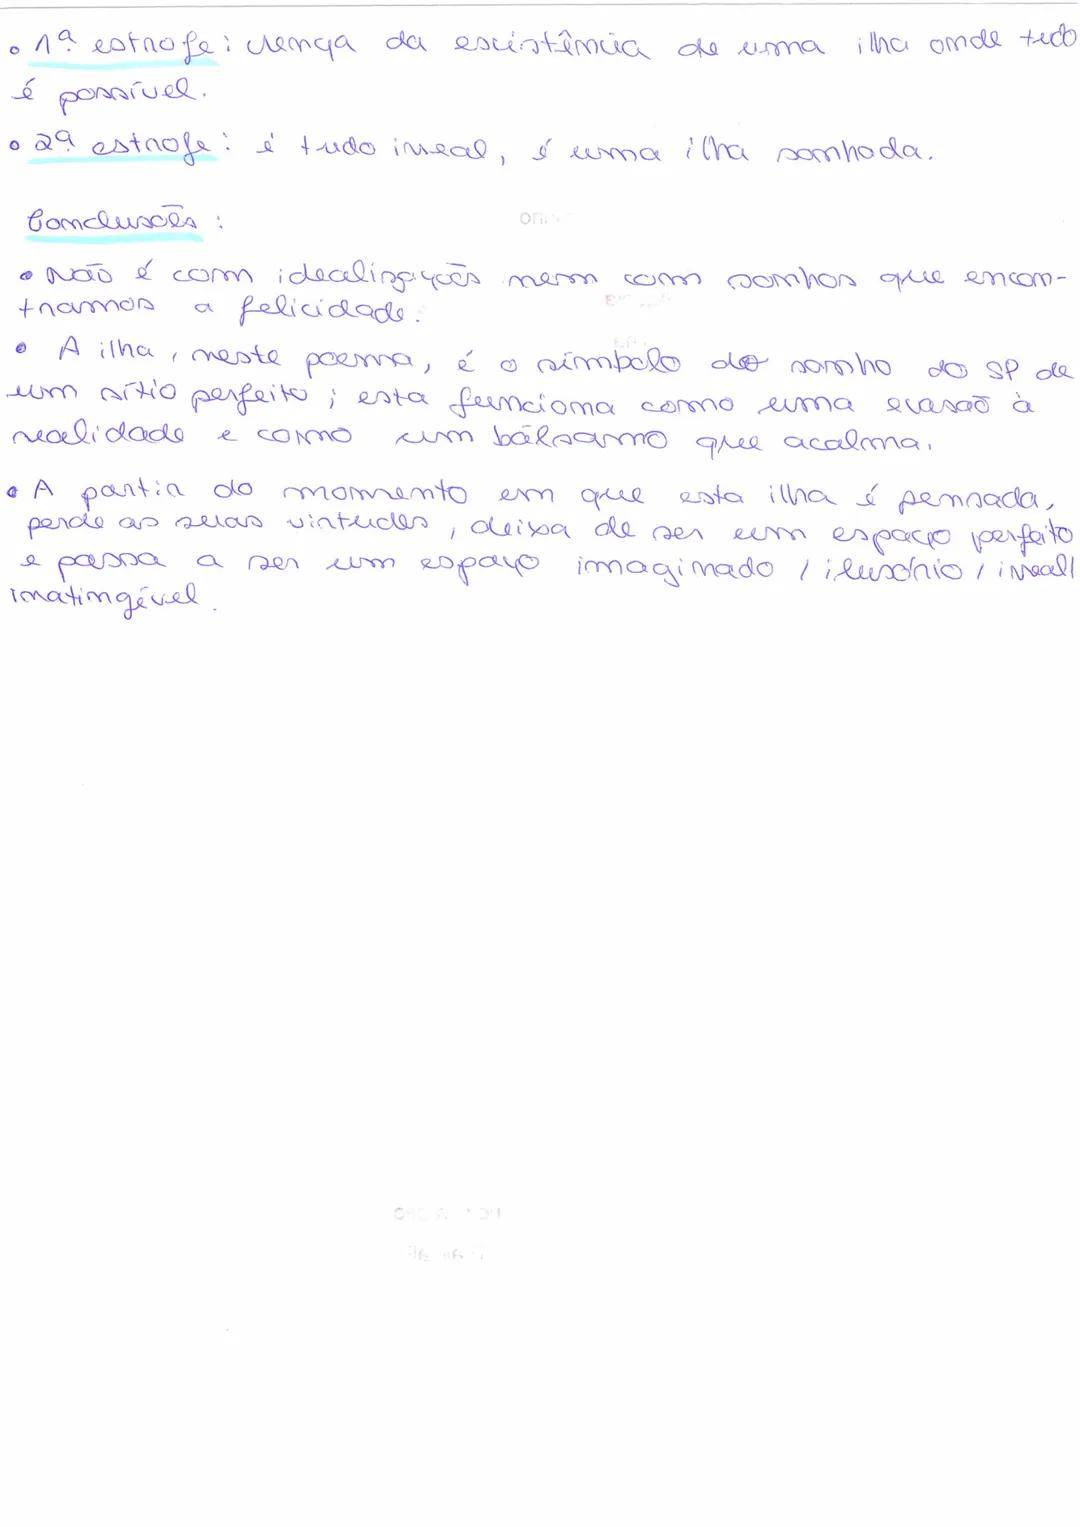 • 1ª estrofe: crença da existência de uma ilha onde tudo
é possível.
• 2ª estrofe: é tudo irreal, é uma ilha sonhada.
Conclusões:
• Não é com idealizações nem com sonhos que encon-
tramos a felicidade.
• A ilha, neste poema, é o símbolo do sonho do SP de
um sítio perfeito; esta funciona como uma evasão à
realidade e como um bálsamo que acalma.
• A partir do momento em que esta ilha é pensada,
perde as suas virtudes, deixa de ser um espaço perfeito
e passa a ser um espaço imaginado / ilusório / irreal/
inatingível.